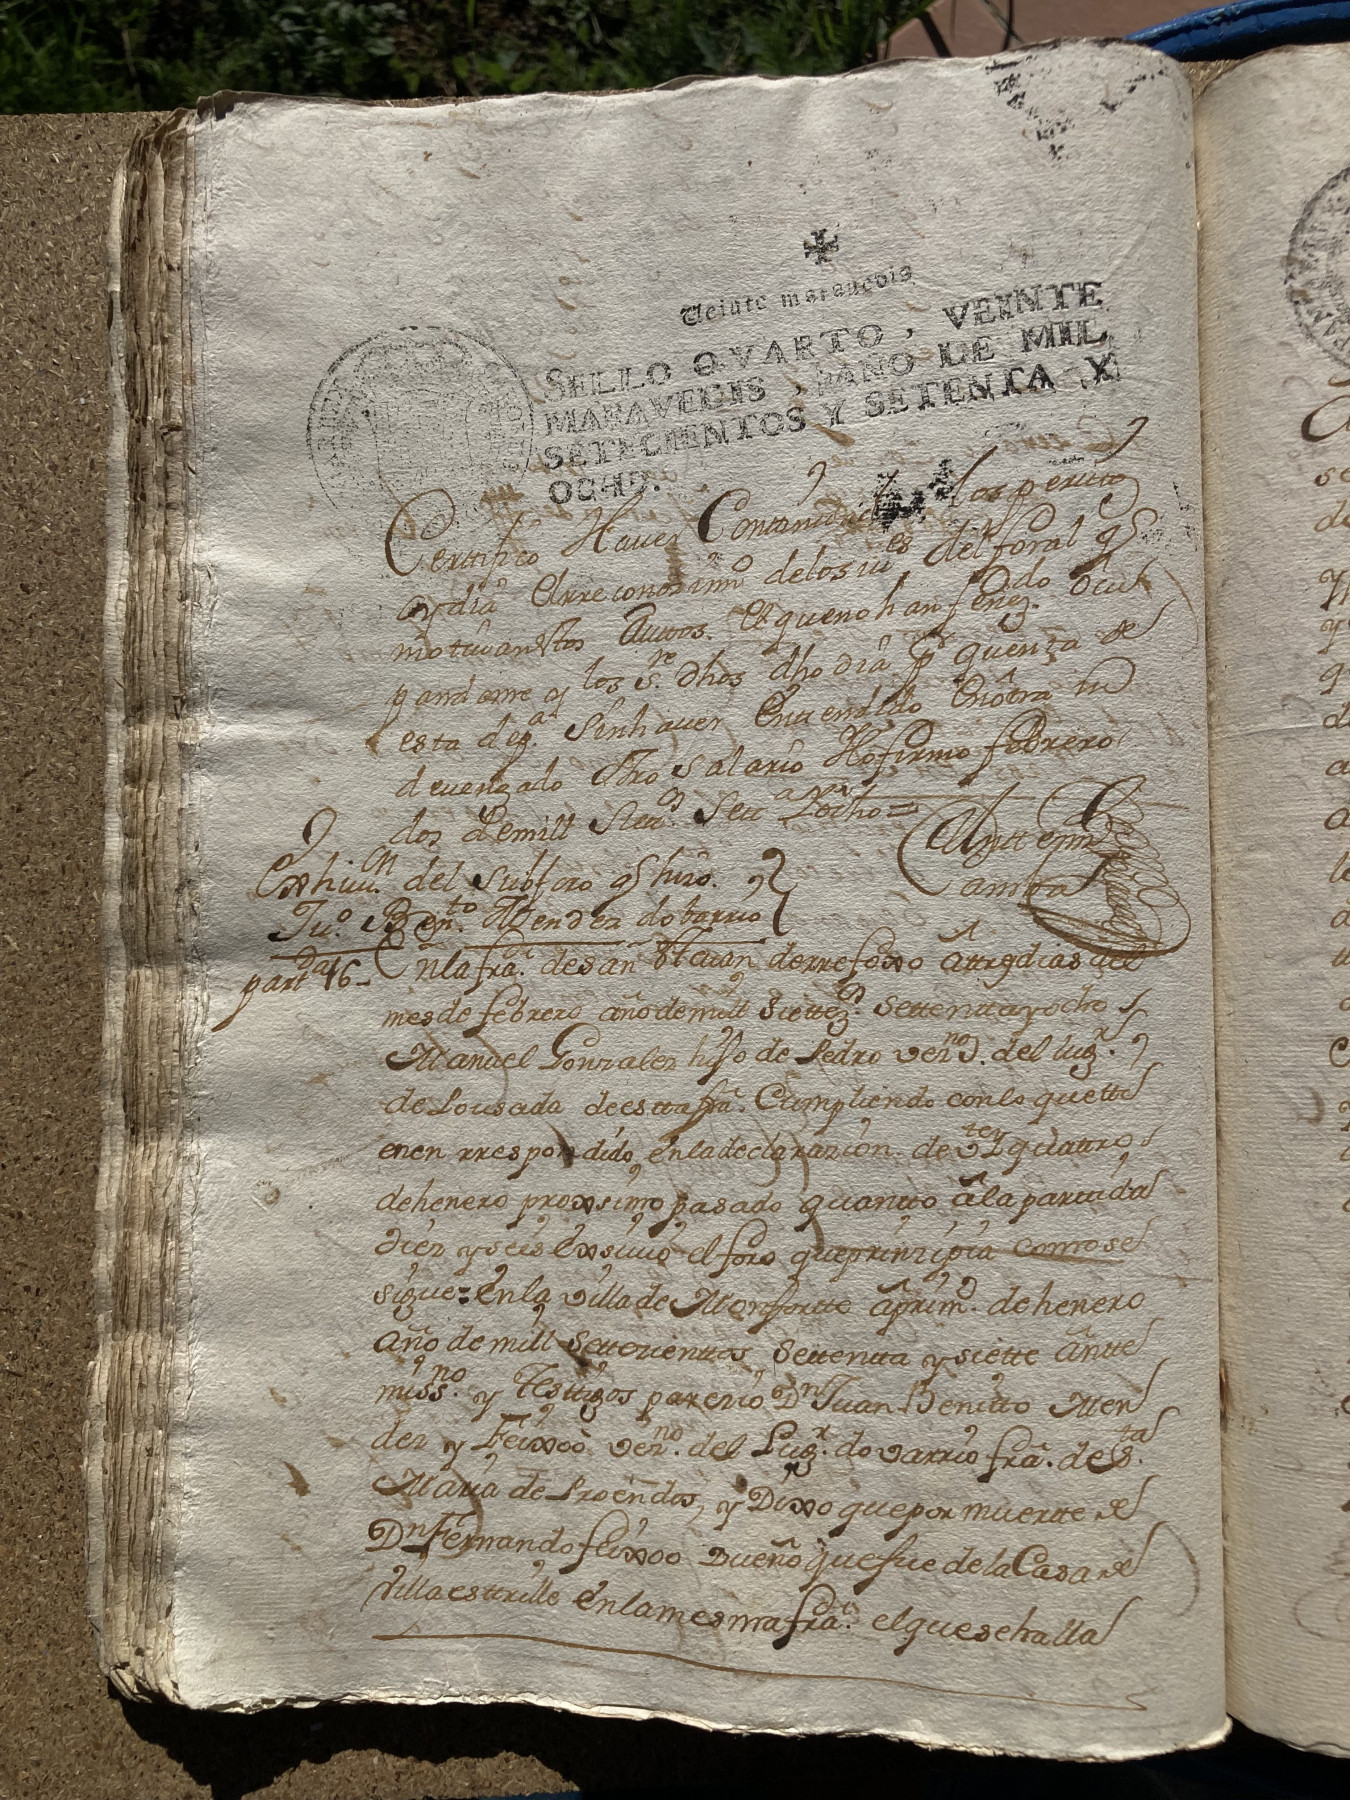 Veinte maravedis
SELLO QVARTO, VEINTE
MARAVEDIS, AÑO DE MIL
SETECIENTOS Y SETENTA Y
OCHO.
Certifico Haver los perito
oydia Elrreconozimto delosvies delforal qe
motivanestos Autos. Equenohan fenezdo ocu
pandome y los sre dhos dhodia Pr quenta de
esta dega sinhaver Entendido Enôtra ni
devengado ôtro salario Hofirmo febrero
dos Demill Setezs Seta Yocho=
Antemi
Exhivn del subforo qe hizo
Jun. Bento Mendez dobarrio
partda 16- Enla fra. desan Juan derrefoxo âtrezdias del
mesde febrero año demill Siettezs. settenttayocho
Manuel Gonzalez hijo de Pedro vezno. del lugr.
de Lousada deestafra. Cumpliendo conlo quetti
enen rrespondido, enladeclarazion de Veyquattro
dehenero proxsimo pasado quantto âla parttida
diez yseis Exsivio el foro queprinzipia comose
sigue= Enla villade Monfortte âprimo. dehenero
año demill settezienttos settentta ysiette ântte
missno. y Testtigos parezio Dn Juan Benitto Men
dez y Feixoo vezno. del Lugr. do varrio fra. de Sta
Maria de Proendos, y Dixo quepor muertte de
Dn Fernando feixoo Dueño quefue dela Casa de
villaesttrille Enlamesma fra. elquesehalla